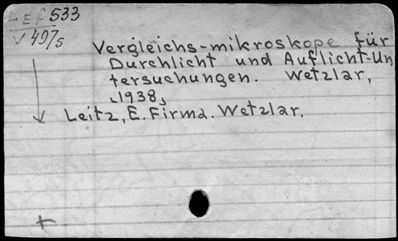 HEf 533
V 4975
Vergleichs-mikroskope für
Durchlicht und Auflicht-Un
tersuchungen. Wetzlar,
1938
Leitz, E. Firma. Wetzlar.